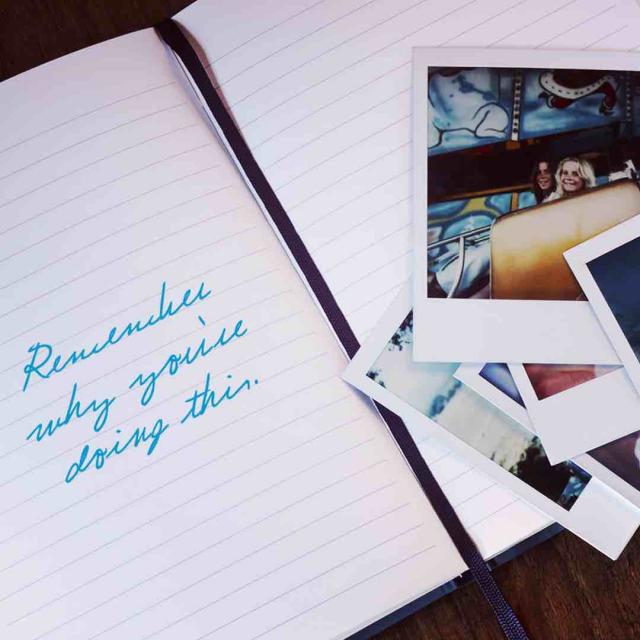 Remember
why you're
doing this.